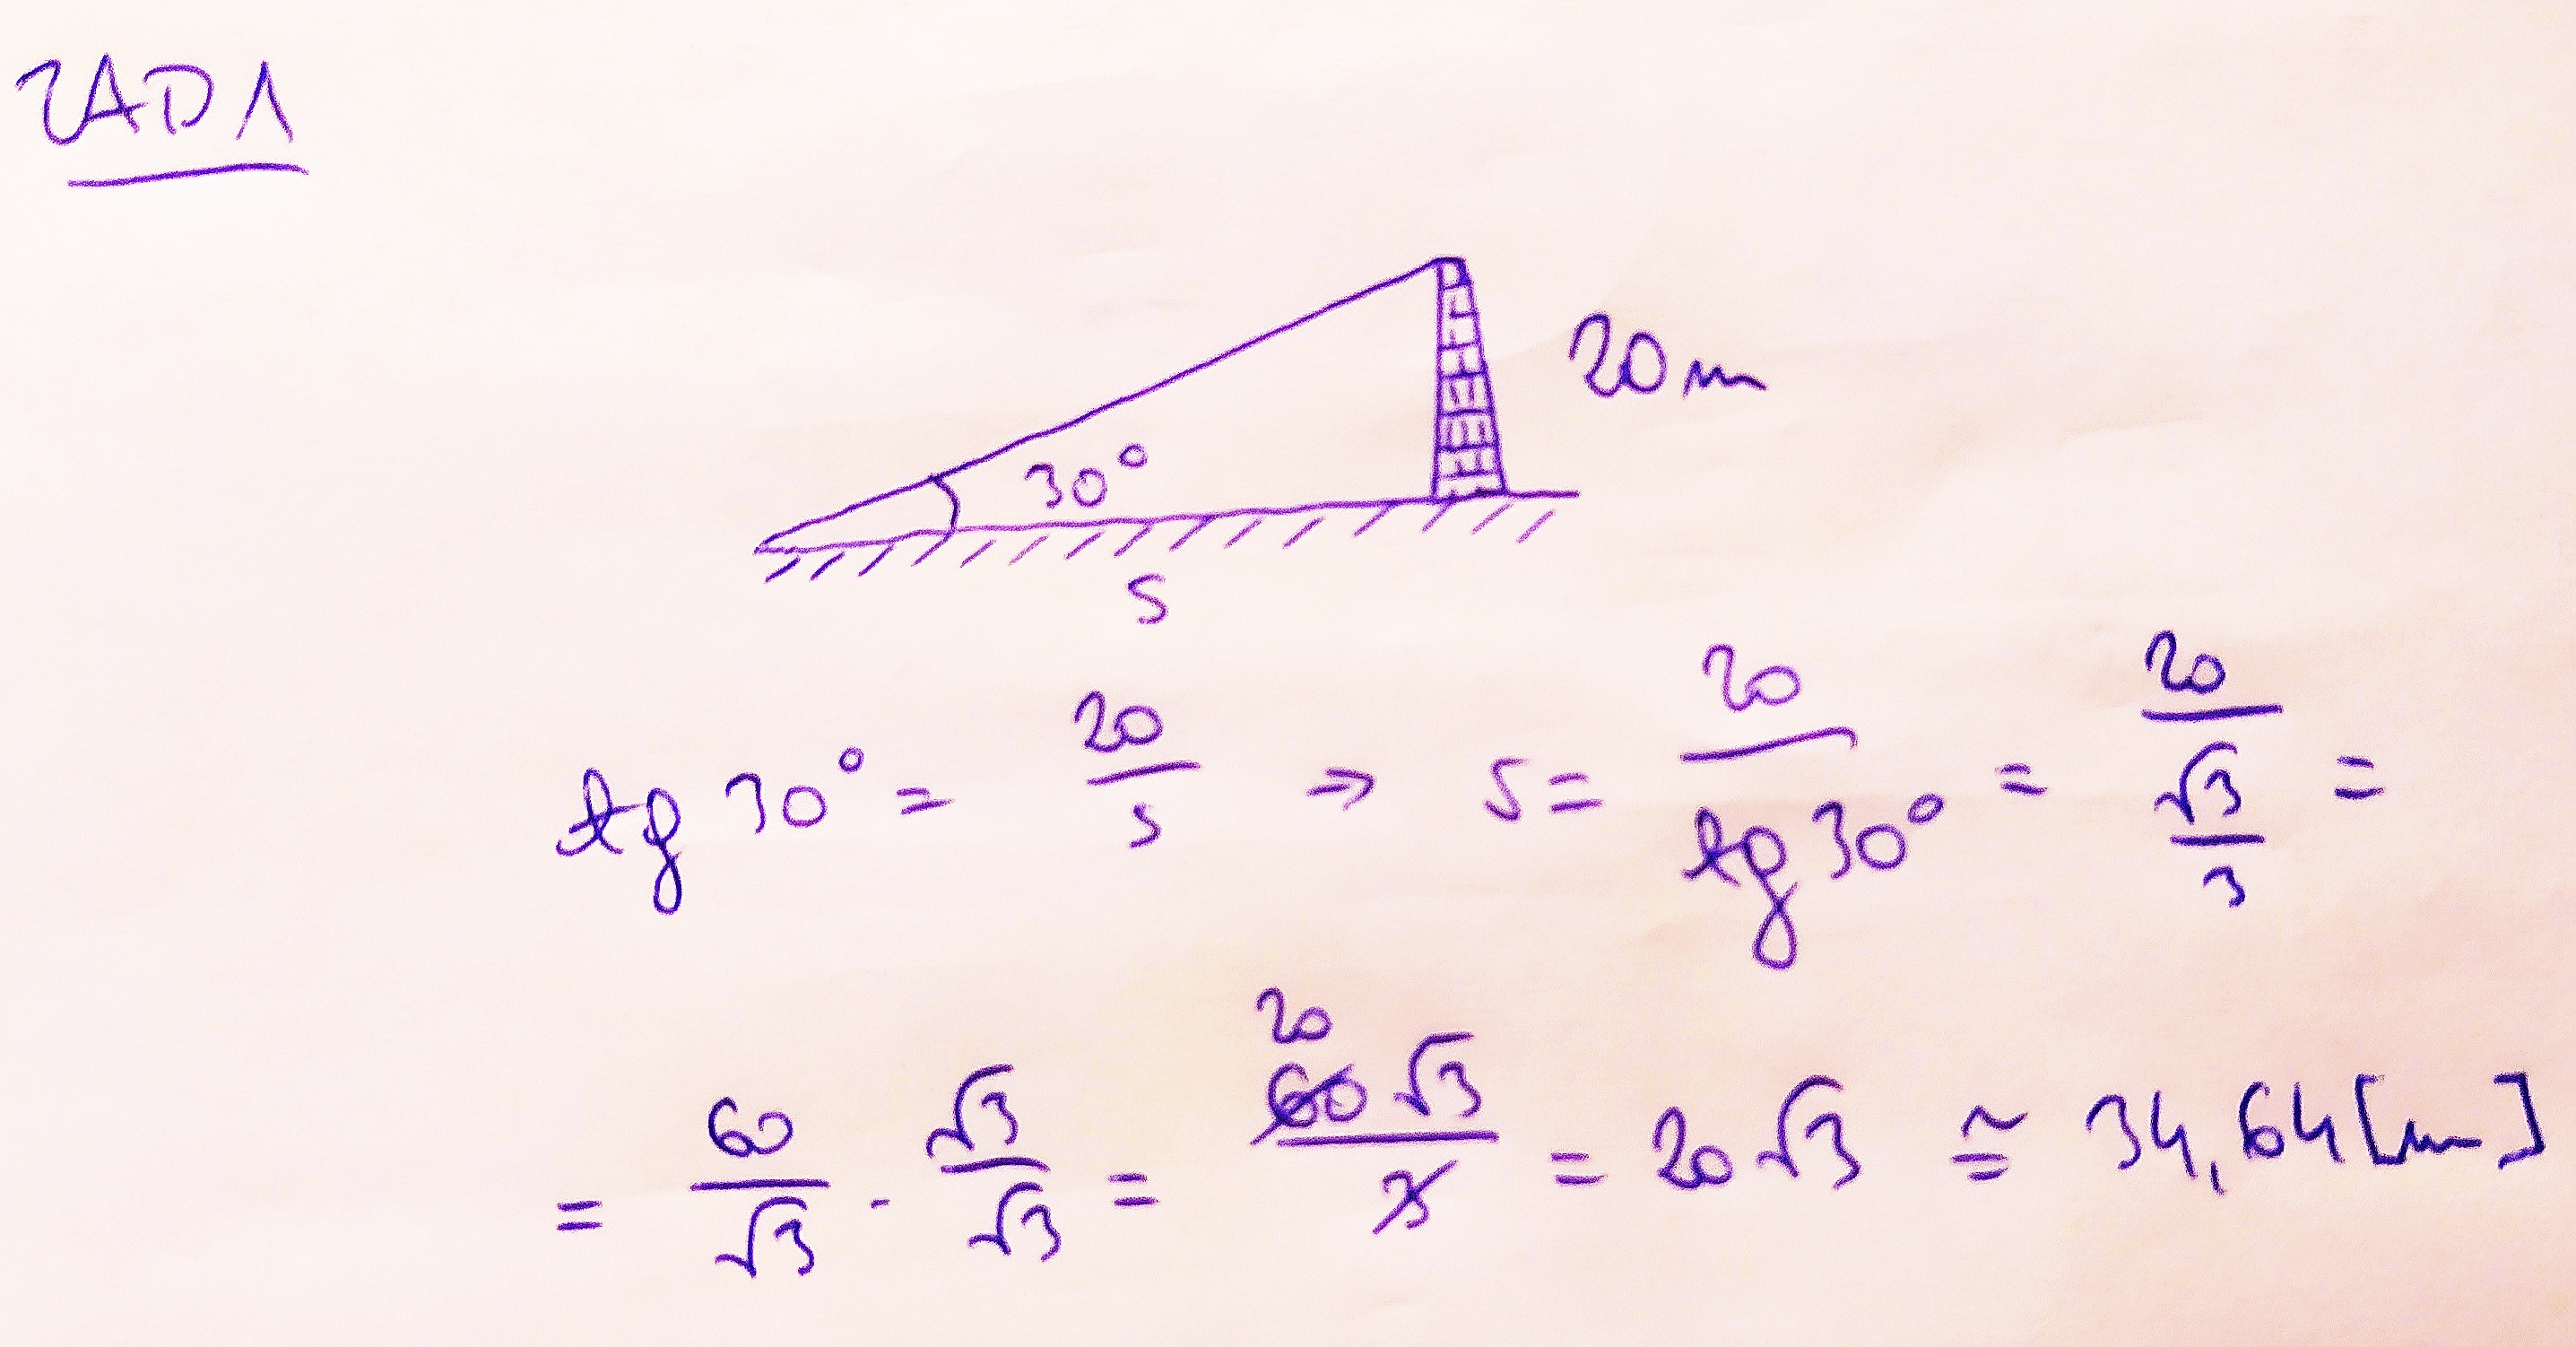 ZAD 1
20 m
30°
S
tg 30° = 20/s ⇒ s = 20/tg 30° = 20/(√3/3) =
= 60/√3 · √3/√3 = 20 60√3/3 = 20√3 ≅ 34,64 [m]